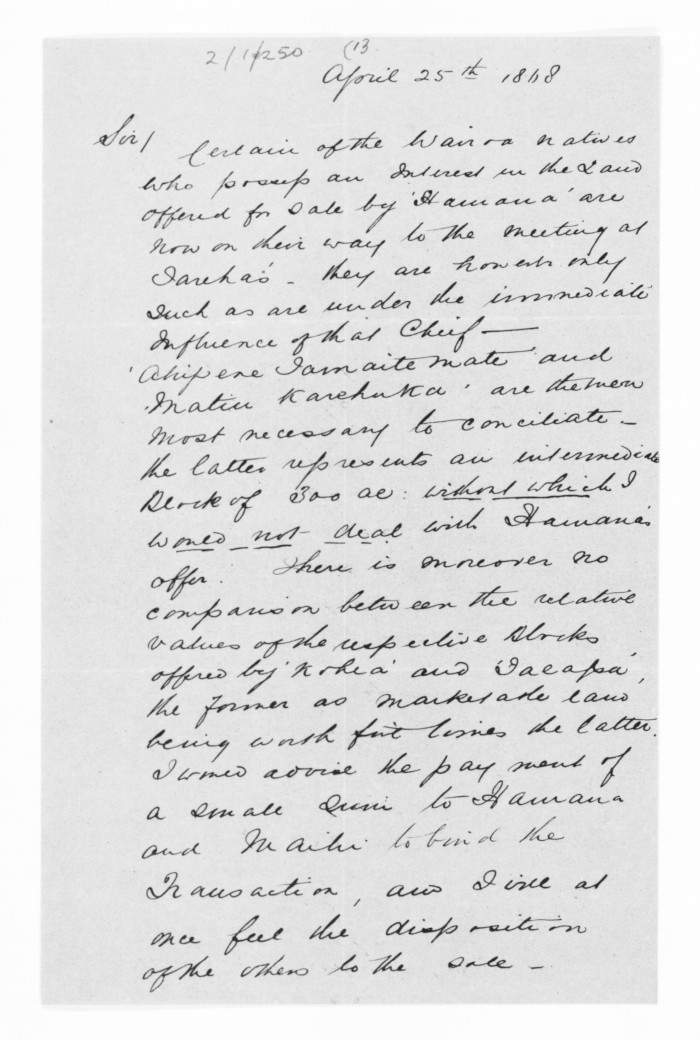 2/1/250 (13
April 25th 1868
Sir/
Certain of the Wairoa natives
who possess an Interest in the Land
offered for Sale by 'Hamana' are
now on their way to the meeting at
Tareha's - they are however only
such as are under the immediate
Influence of that Chief —
'Ahipene Tamaitemate' and
'Matiu Karehuka' are the men
most necessary to conciliate -
the latter represents an intermediate
Block of 300 ac: without which I
would not deal with Hamana's
offer. There is moreover no
comparison between the relative
values of the respective Blocks
offered by 'Kohea' and
the former as marketable land
being worth five times the latter.
I would advise the payment of
a small Sum to Hamana
and Maihi to bind the
Transaction, and I will at
once feel the disposition
of the others to the sale -